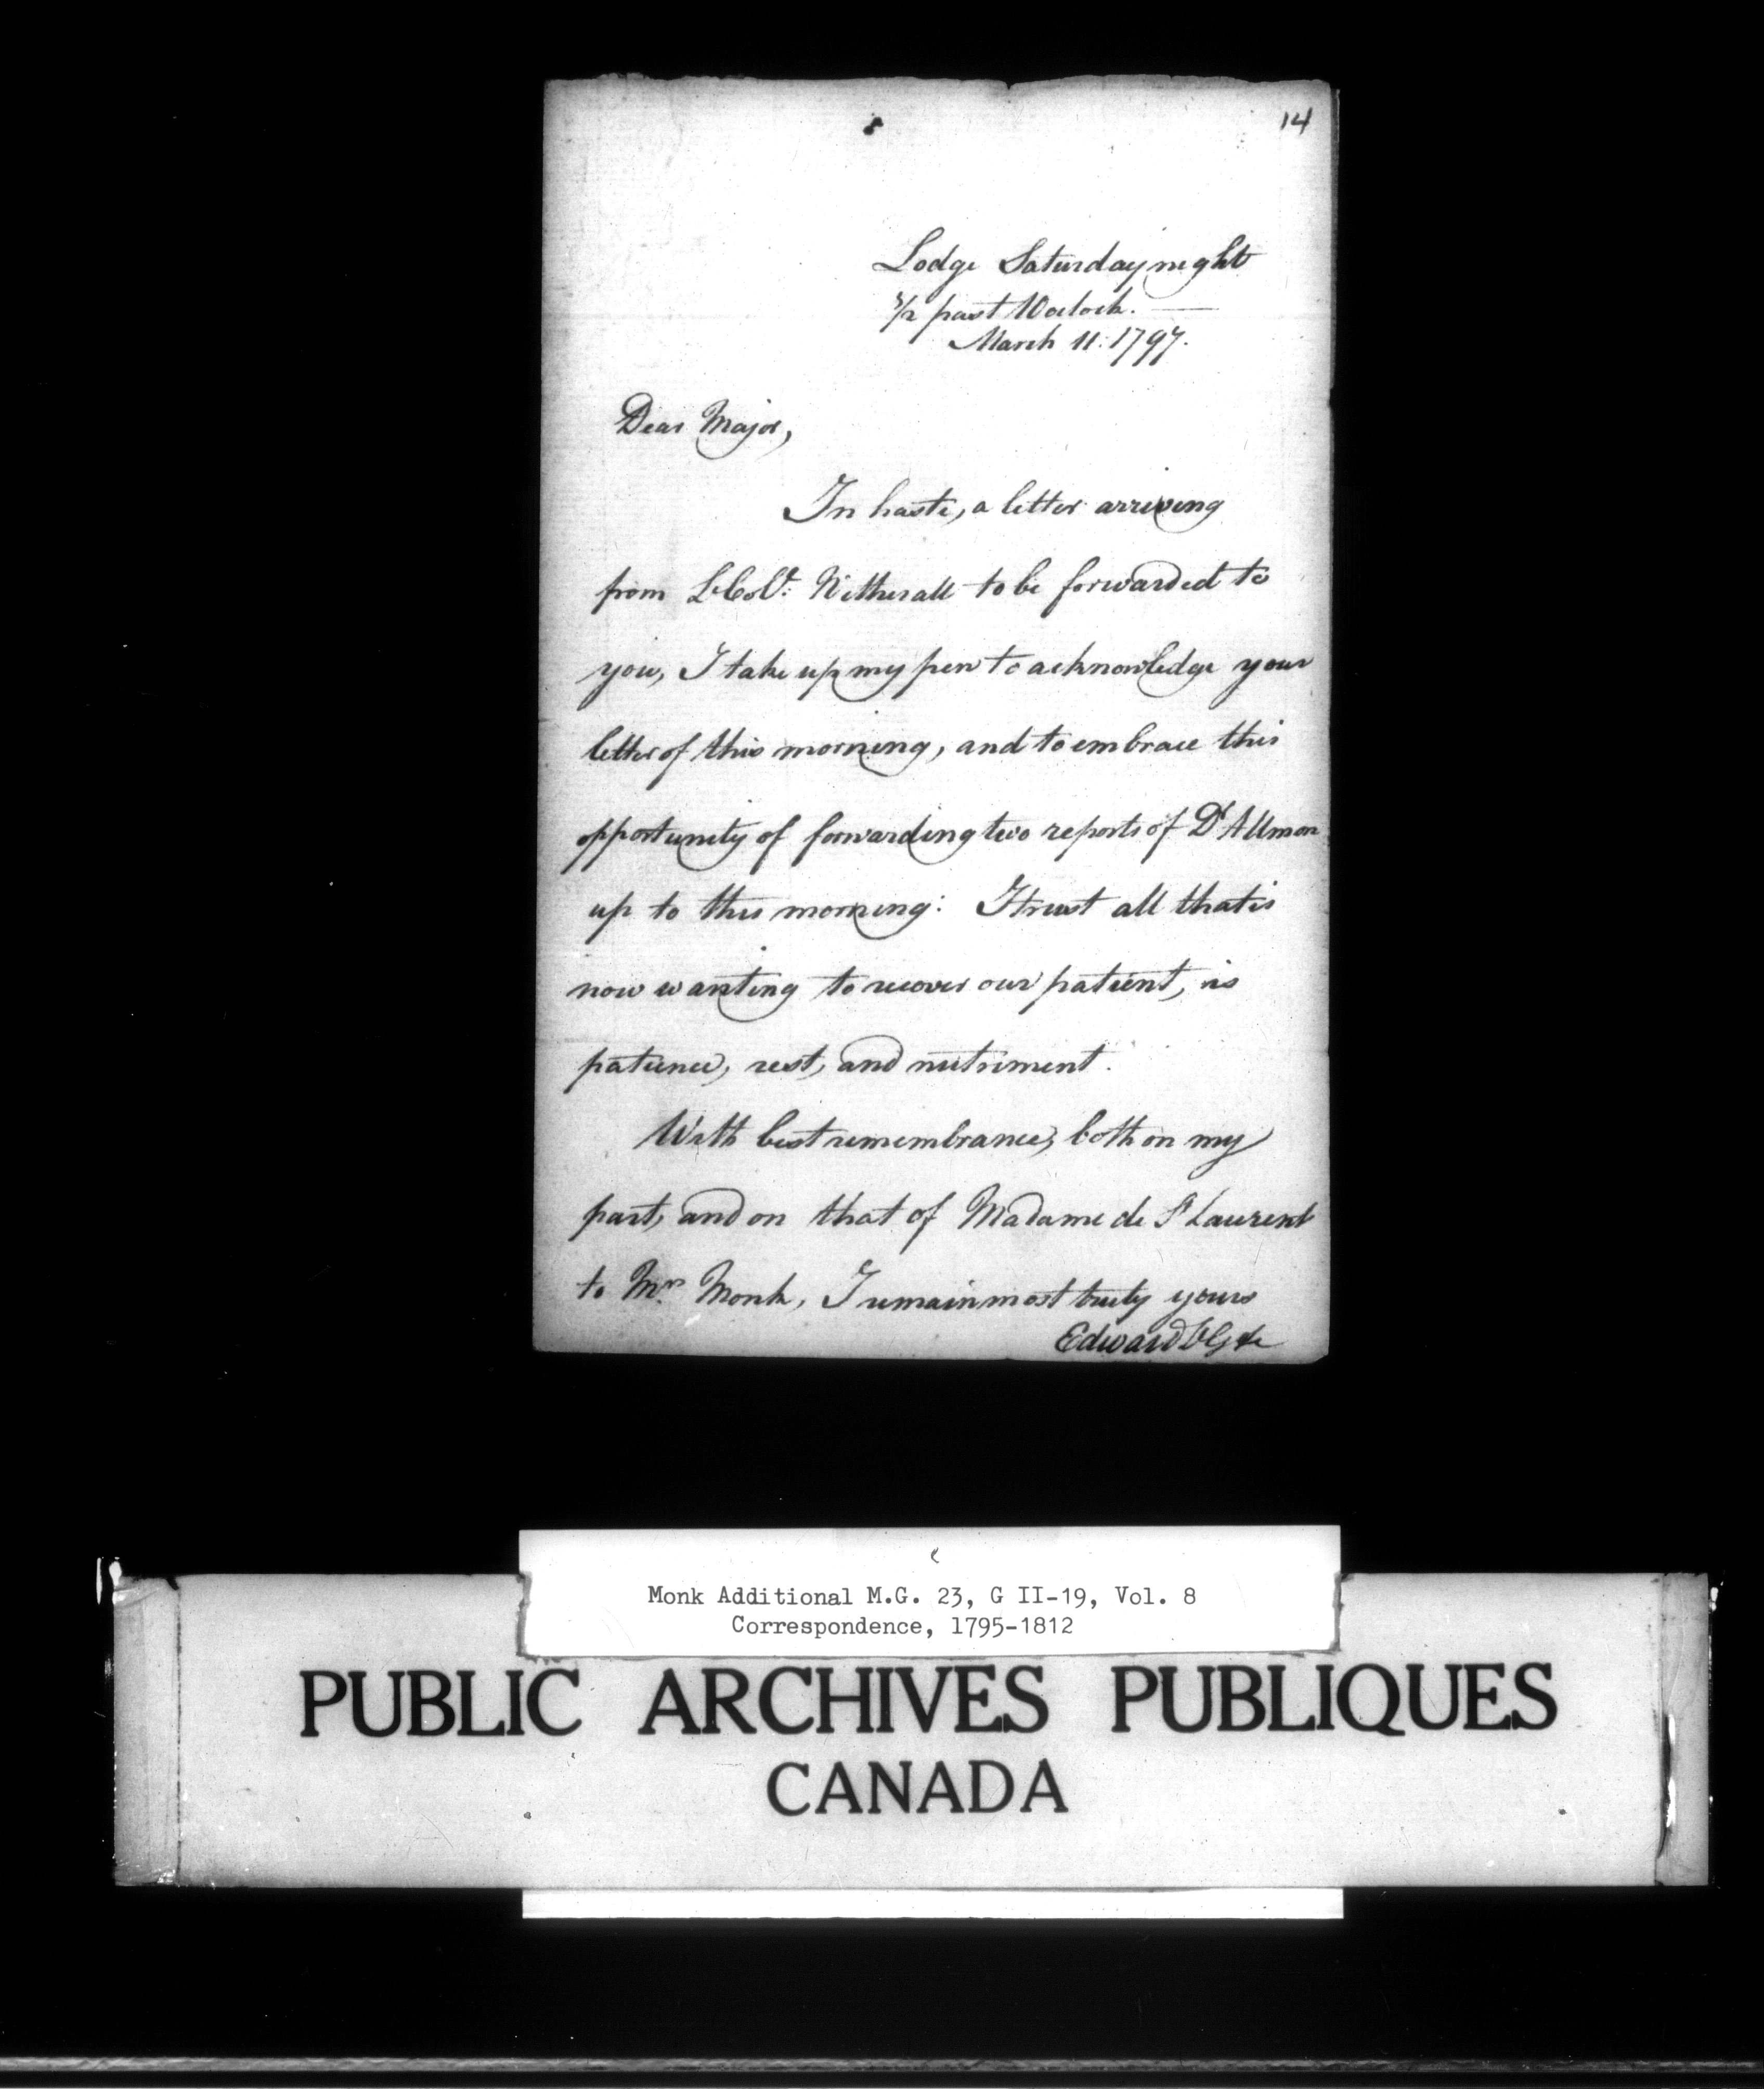 14
Lodge Saturday night
1/2 past 10 oclock. —
March 11: 1797.
Dear Major,
In haste, a letter arriving
from Lt Col: Wetherall to be forwarded to
you, I take up my pen to acknowledge your
letter of this morning, and to embrace this
opportunity of forwarding two reports of Dr Allmon
up to this morning: I trust all that is
now wanting to recover our patient, is
patience, rest, and nutriment.
With best remembrance, both on my
part, and on that of Madame de St Laurent
to Mrs Monk, I remain most truly yours
Edward
Monk Additional M.G. 23, G II-19, Vol. 8
Correspondence, 1795-1812
PUBLIC ARCHIVES PUBLIQUES
CANADA